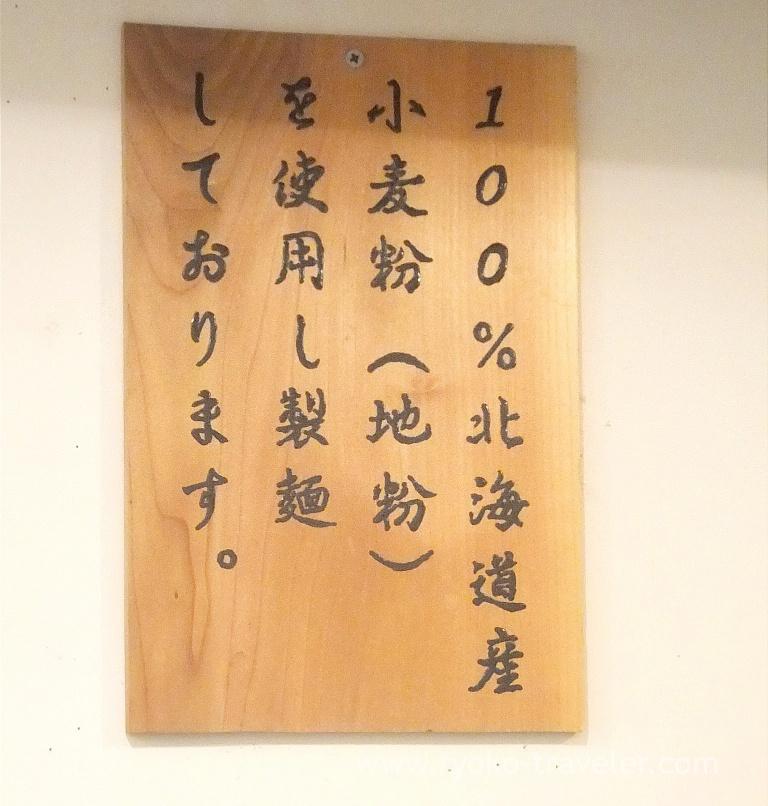 100%北海道産
小麦粉(地粉)
を使用し製麺
しております。
www.ryoko-traveler.com